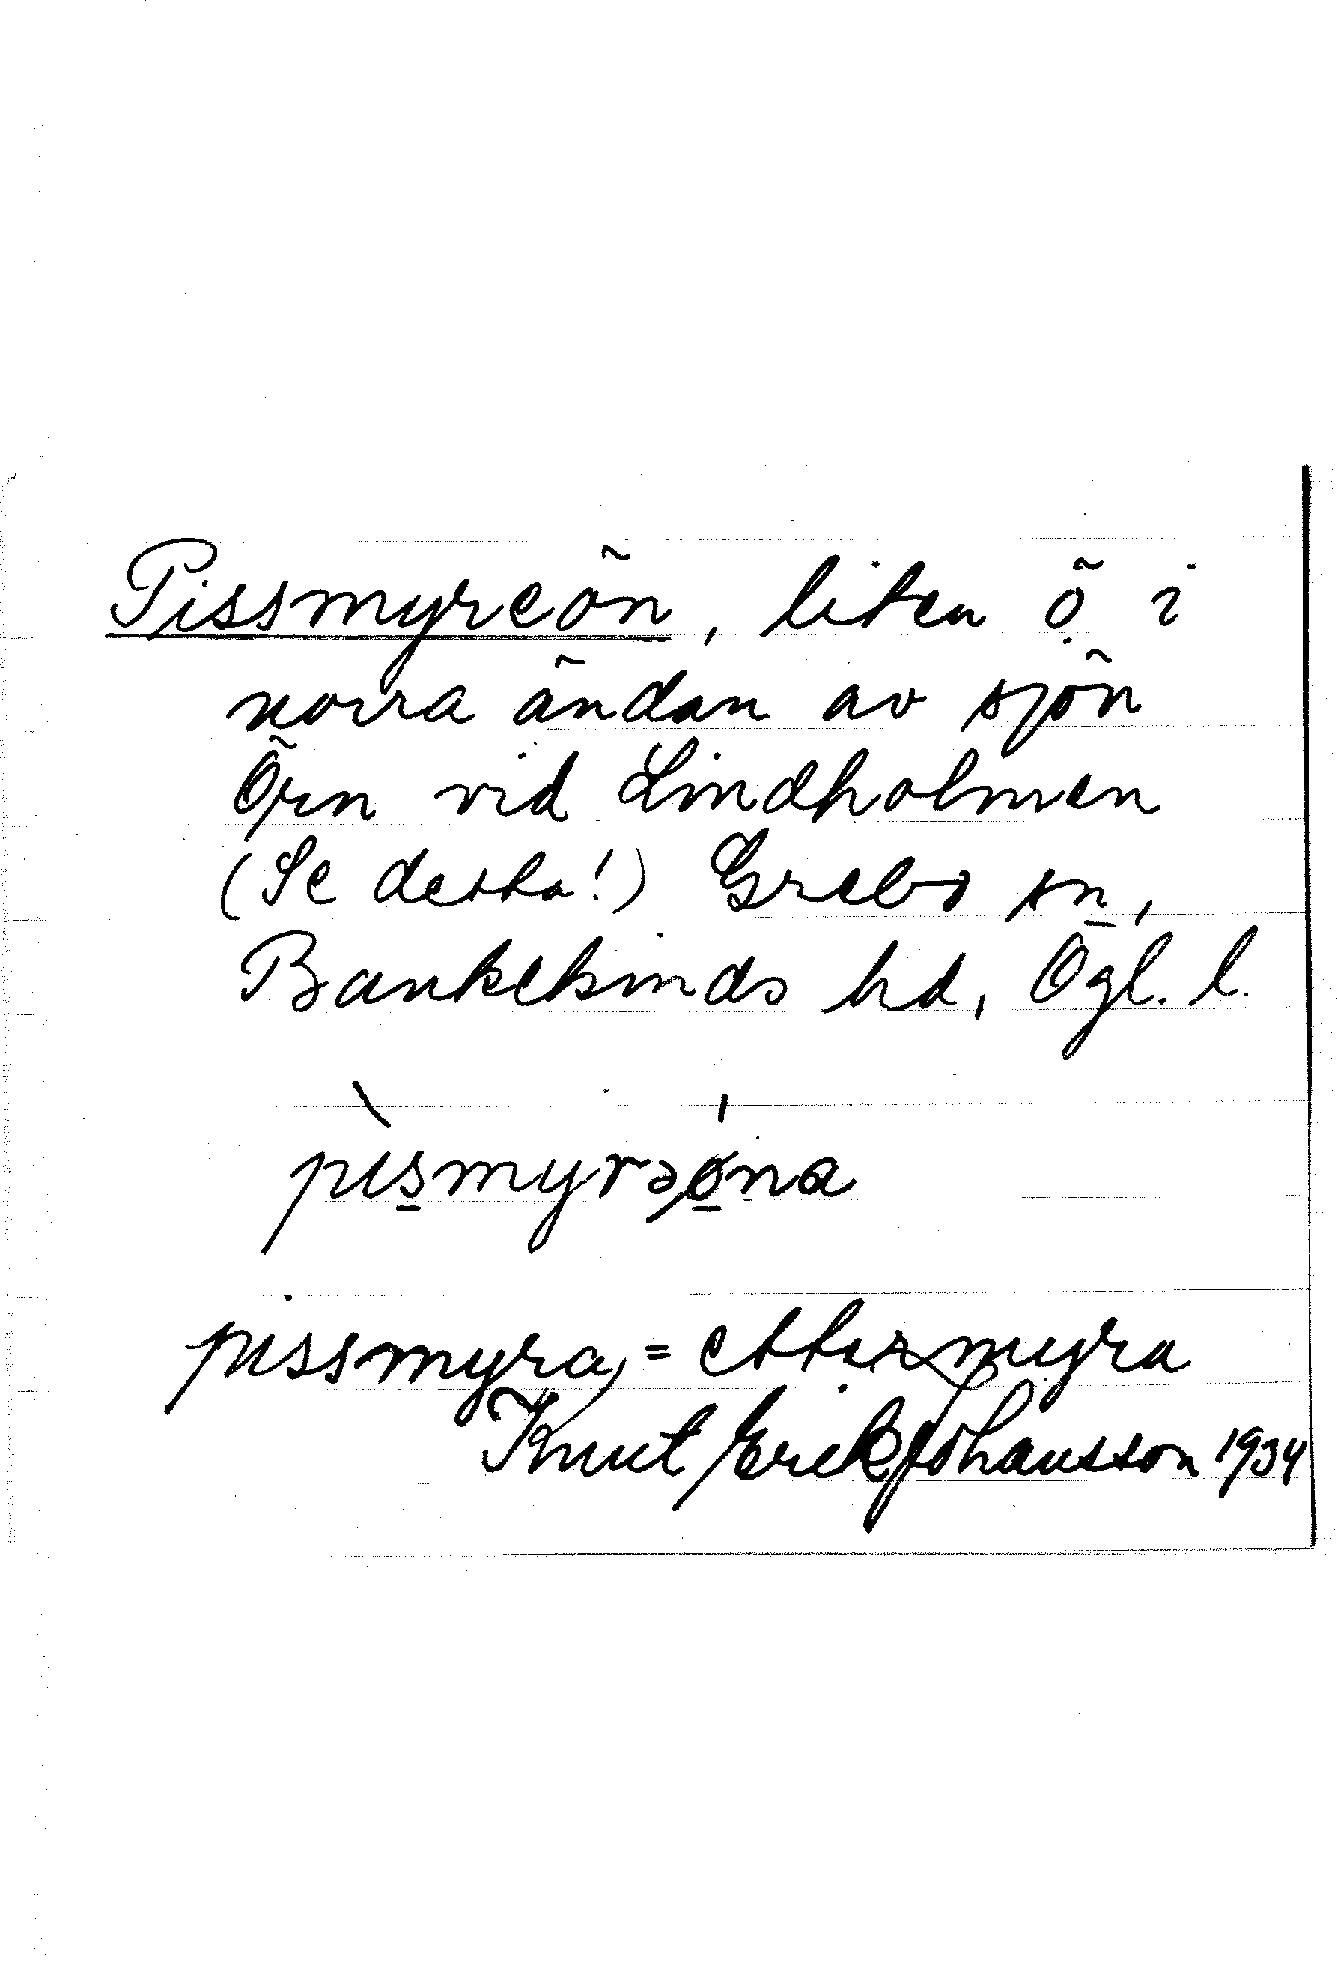 Pissmyreön, liten ö i
norra ändan av sjön
Örn vid Lindholmen
(Se detta!) Grebo sn,
Bankekinds hd, Ögl. l.
pìs̲myrəǿ̲na
pissmyra, = ettermyra
Knut Erik Johansson 1934